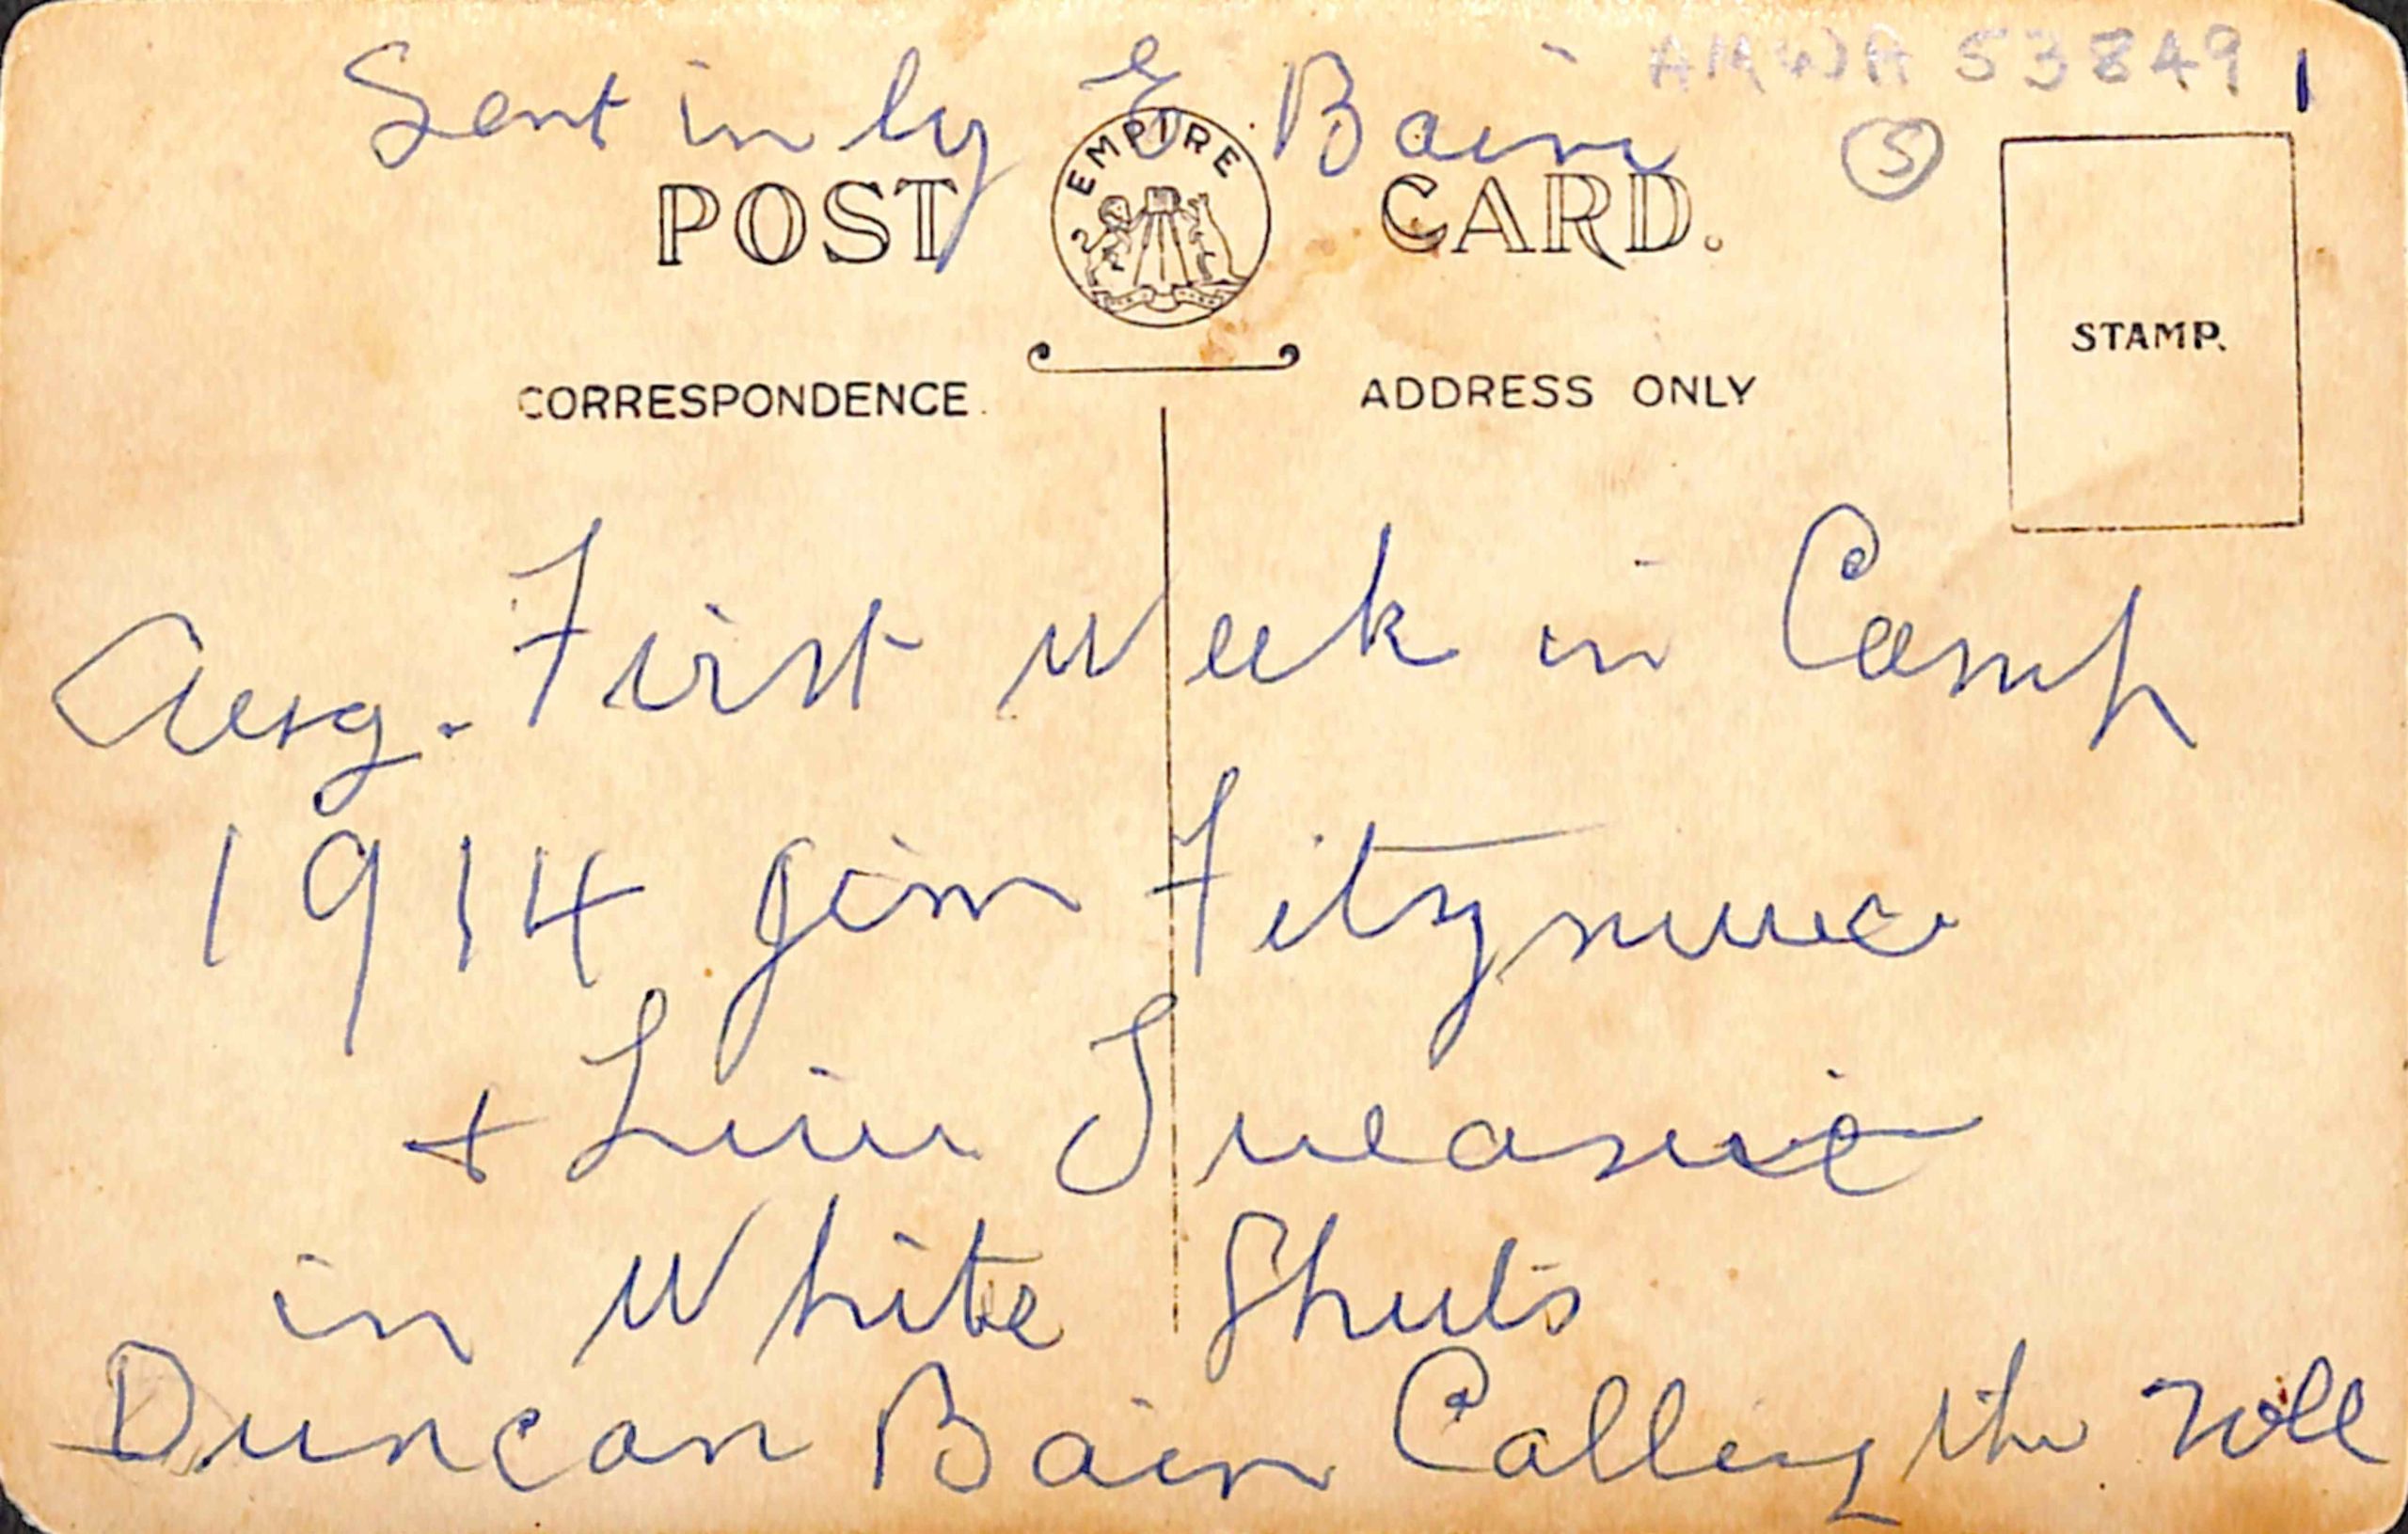 AMWA 53849
Sent in by E Bain
5
EMPIRE
POST CARD.
STAMP.
CORRESPONDENCE.
ADDRESS ONLY
First week in Camp
Aug.
1914 Jim
+
in White Shirts
Duncan Bain Calling the roll